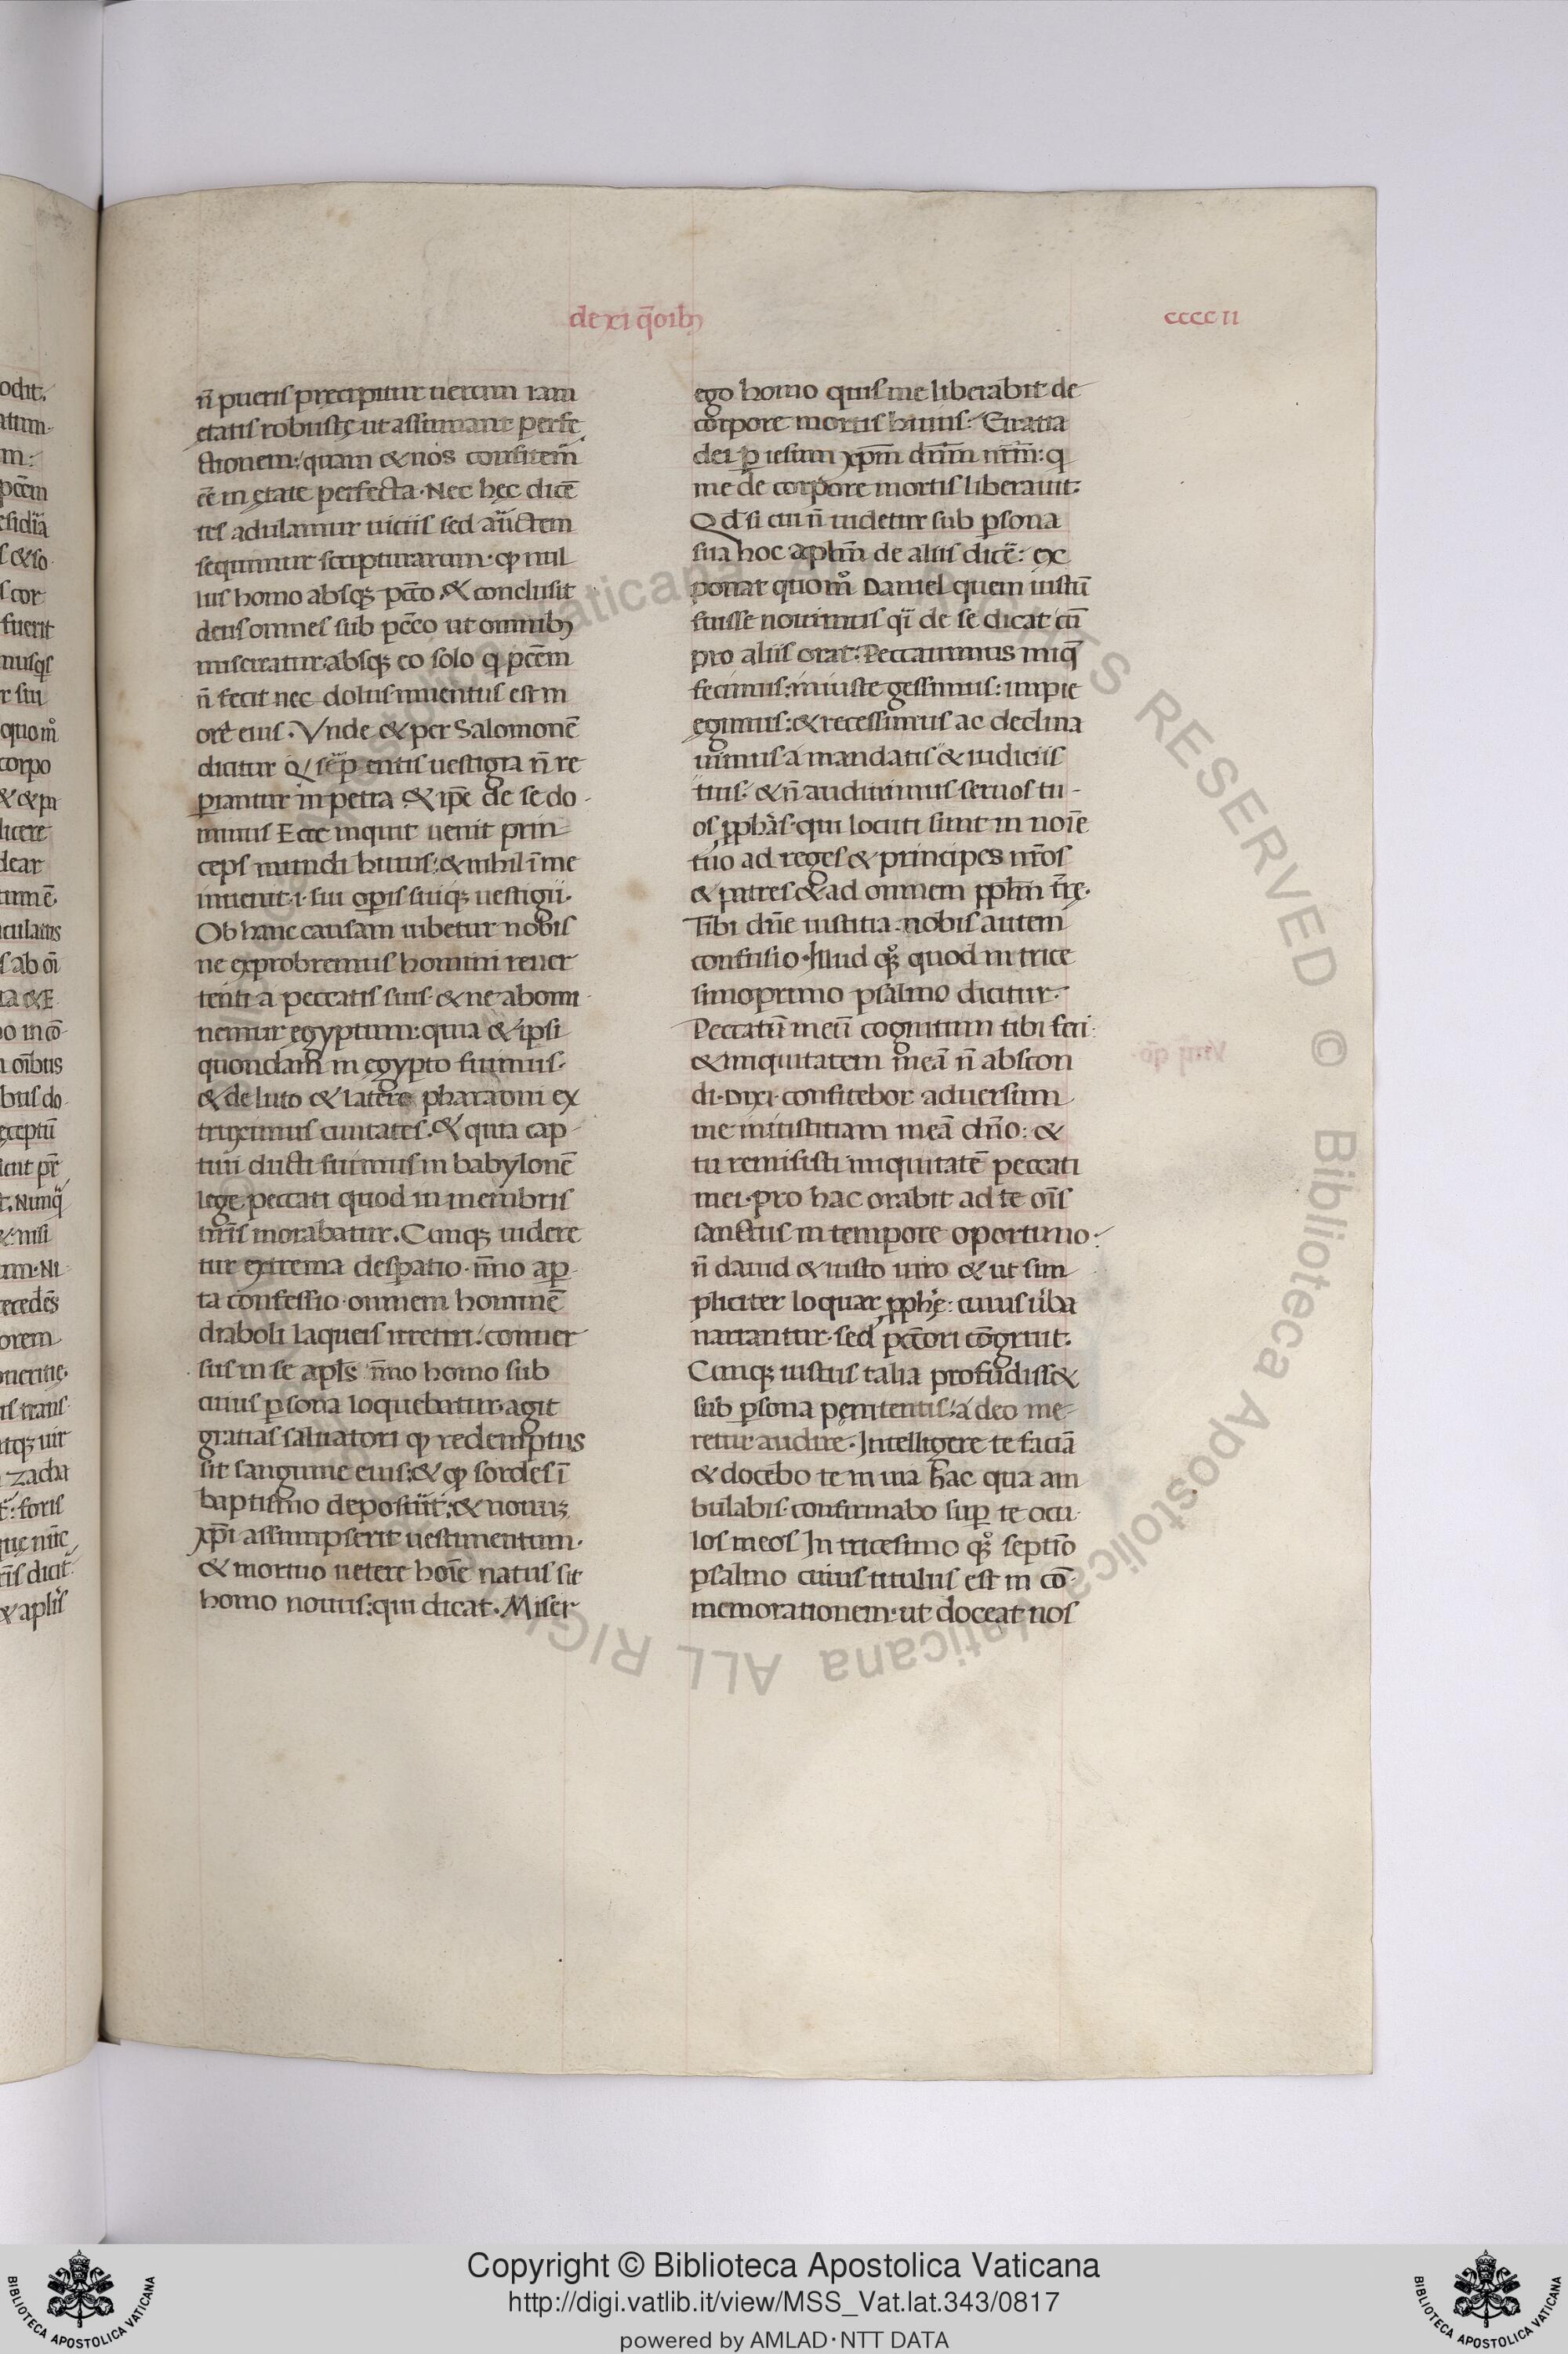 de xi q̄oib;
ccccii
n̄ pueris pręcipitur uerum iam
ętatis robustę ut assumant perfe
ctionem: quam & nos confitem̄
ēē in ętate perfecta. Nec hęc dicē
tes adulamur uiciis sed auctem
sequimur scripturarum. qđ nul
lus homo absq; pcc̄o. & conclusit
deus omnes sub pcc̄o ut omnib;
misereatur. absq; eo solo q pcc̄m
n̄ fecit nec dolus inuentus est in
ore eius. Unde & per Salomonē
dicitur Q serpentis uestigia n̄ re
periantur in petra. & ip̄e de se do-
minus Ecce inquit uenit prin-
ceps mundi huius: & nihil ī me
inuenit. i. sui operis suiq; uestigii.
Ob hanc causam iubetur nobis
ne exprobremus homini reuer
tenti a peccatis suis. & ne abomi-
nemur egyptum: quia & ipsi
quondam in egypto fuimus.
& de luto & latere pharaoni ex
truximus ciuitates. & quia cap-
tiui ducti fuimus in babylonē
lege peccati quod in membris
nr̄is morabatur. Cumq; uidere
tur extrema desperatio. īmo aper-
ta confessio. omnem hominē
diaboli laqueis irretiri. conuer
sus in se apl̄s īmo homo sub
cuius persona loquebatur. agit
gratias saluatori qđ redemptus
sit sanguine eius: & qđ sordes ī
baptismo deposuit: & nouū
xp̄i assumpserit uestimentum.
& mortuo uetere hoīe natus sit
homo nouus: qui dicat. Miser
ego homo quis me liberabit de
corpore mortis huius: Gratia
dei p iesum xp̄m dn̄m nr̄m: q
me de corpore mortis liberauit.
Qđ si cui n̄ uidetur sub persona
sua hoc apl̄m de aliis dicē: ex
ponat quom̊ Daniel quem iustū
fuisse nouimus qi de se dicat cū
pro aliis orat: Peccauimus iniq̄
fecimus: iniuste gessimus: impie
egimus: & recessimus ac declina
uimus a mandatis & iudiciis
tuis. & n̄ audiuimus seruos tu-
os pph̄as. qui locuti sunt in noīe
tuo ad reges & principes nr̄os
& patres & ad omnem ppl̄m tr̄ę.
Tibi dn̄e iustitia. nobis autem
confusio. Illud qq; quod in trice
simoprimo psalmo dicitur.
Peccatū meū cognitum tibi feci.
& iniquitatem meā n̄ abscon
di. Dixi. confitebor aduersum
me iniustitiam meā dn̄o: &
tu remisisti iniquitatē peccati
mei. pro hac orabit ad te om̄s
sanctus in tempore oportuno:
n̄ dauid & iusto uiro & ut sim
pliciter loquar pph̄ę: cuius uerba
narrantur. sed pcc̄ori cōgruit.
Cumq; iustus talia profudiss&
sub persona pęnitentis: a deo me-
retur audire. Intelligere te faciā
& docebo te in uia hac qua am
bulabis. confirmabo super te ocu-
los meos In tricesimo qq; septīo
psalmo cuius titulus est in cō-
memorationem. ut doceat nos
Copyright © Biblioteca Apostolica Vaticana
http://digi.vatlib.it/view/MSS_Vat.lat.343/0817
powered by AMLAD·NTT DATA